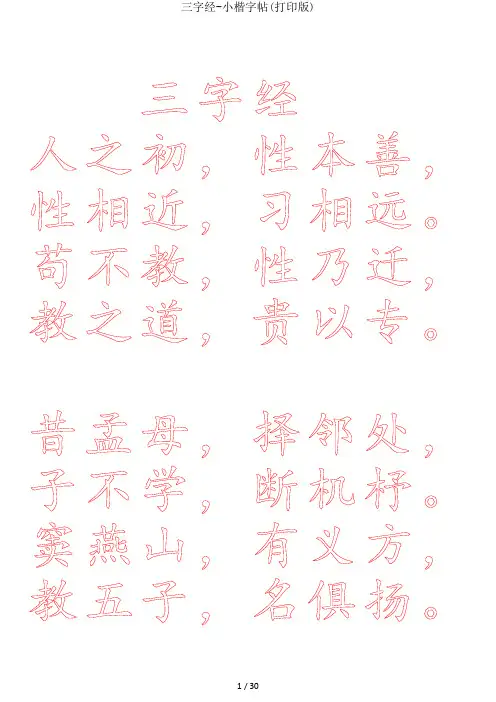 三字经-小楷字帖(打印版)
三字经
人之初，性本善，
性相近，习相远。
苟不教，性乃迁，
教之道，贵以专。
昔孟母，择邻处，
子不学，断机杼。
窦燕山，有义方，
教五子，名俱扬。
1 / 30